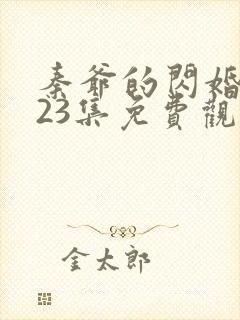 秦爺的閃婚
23集免費觀
金太郎